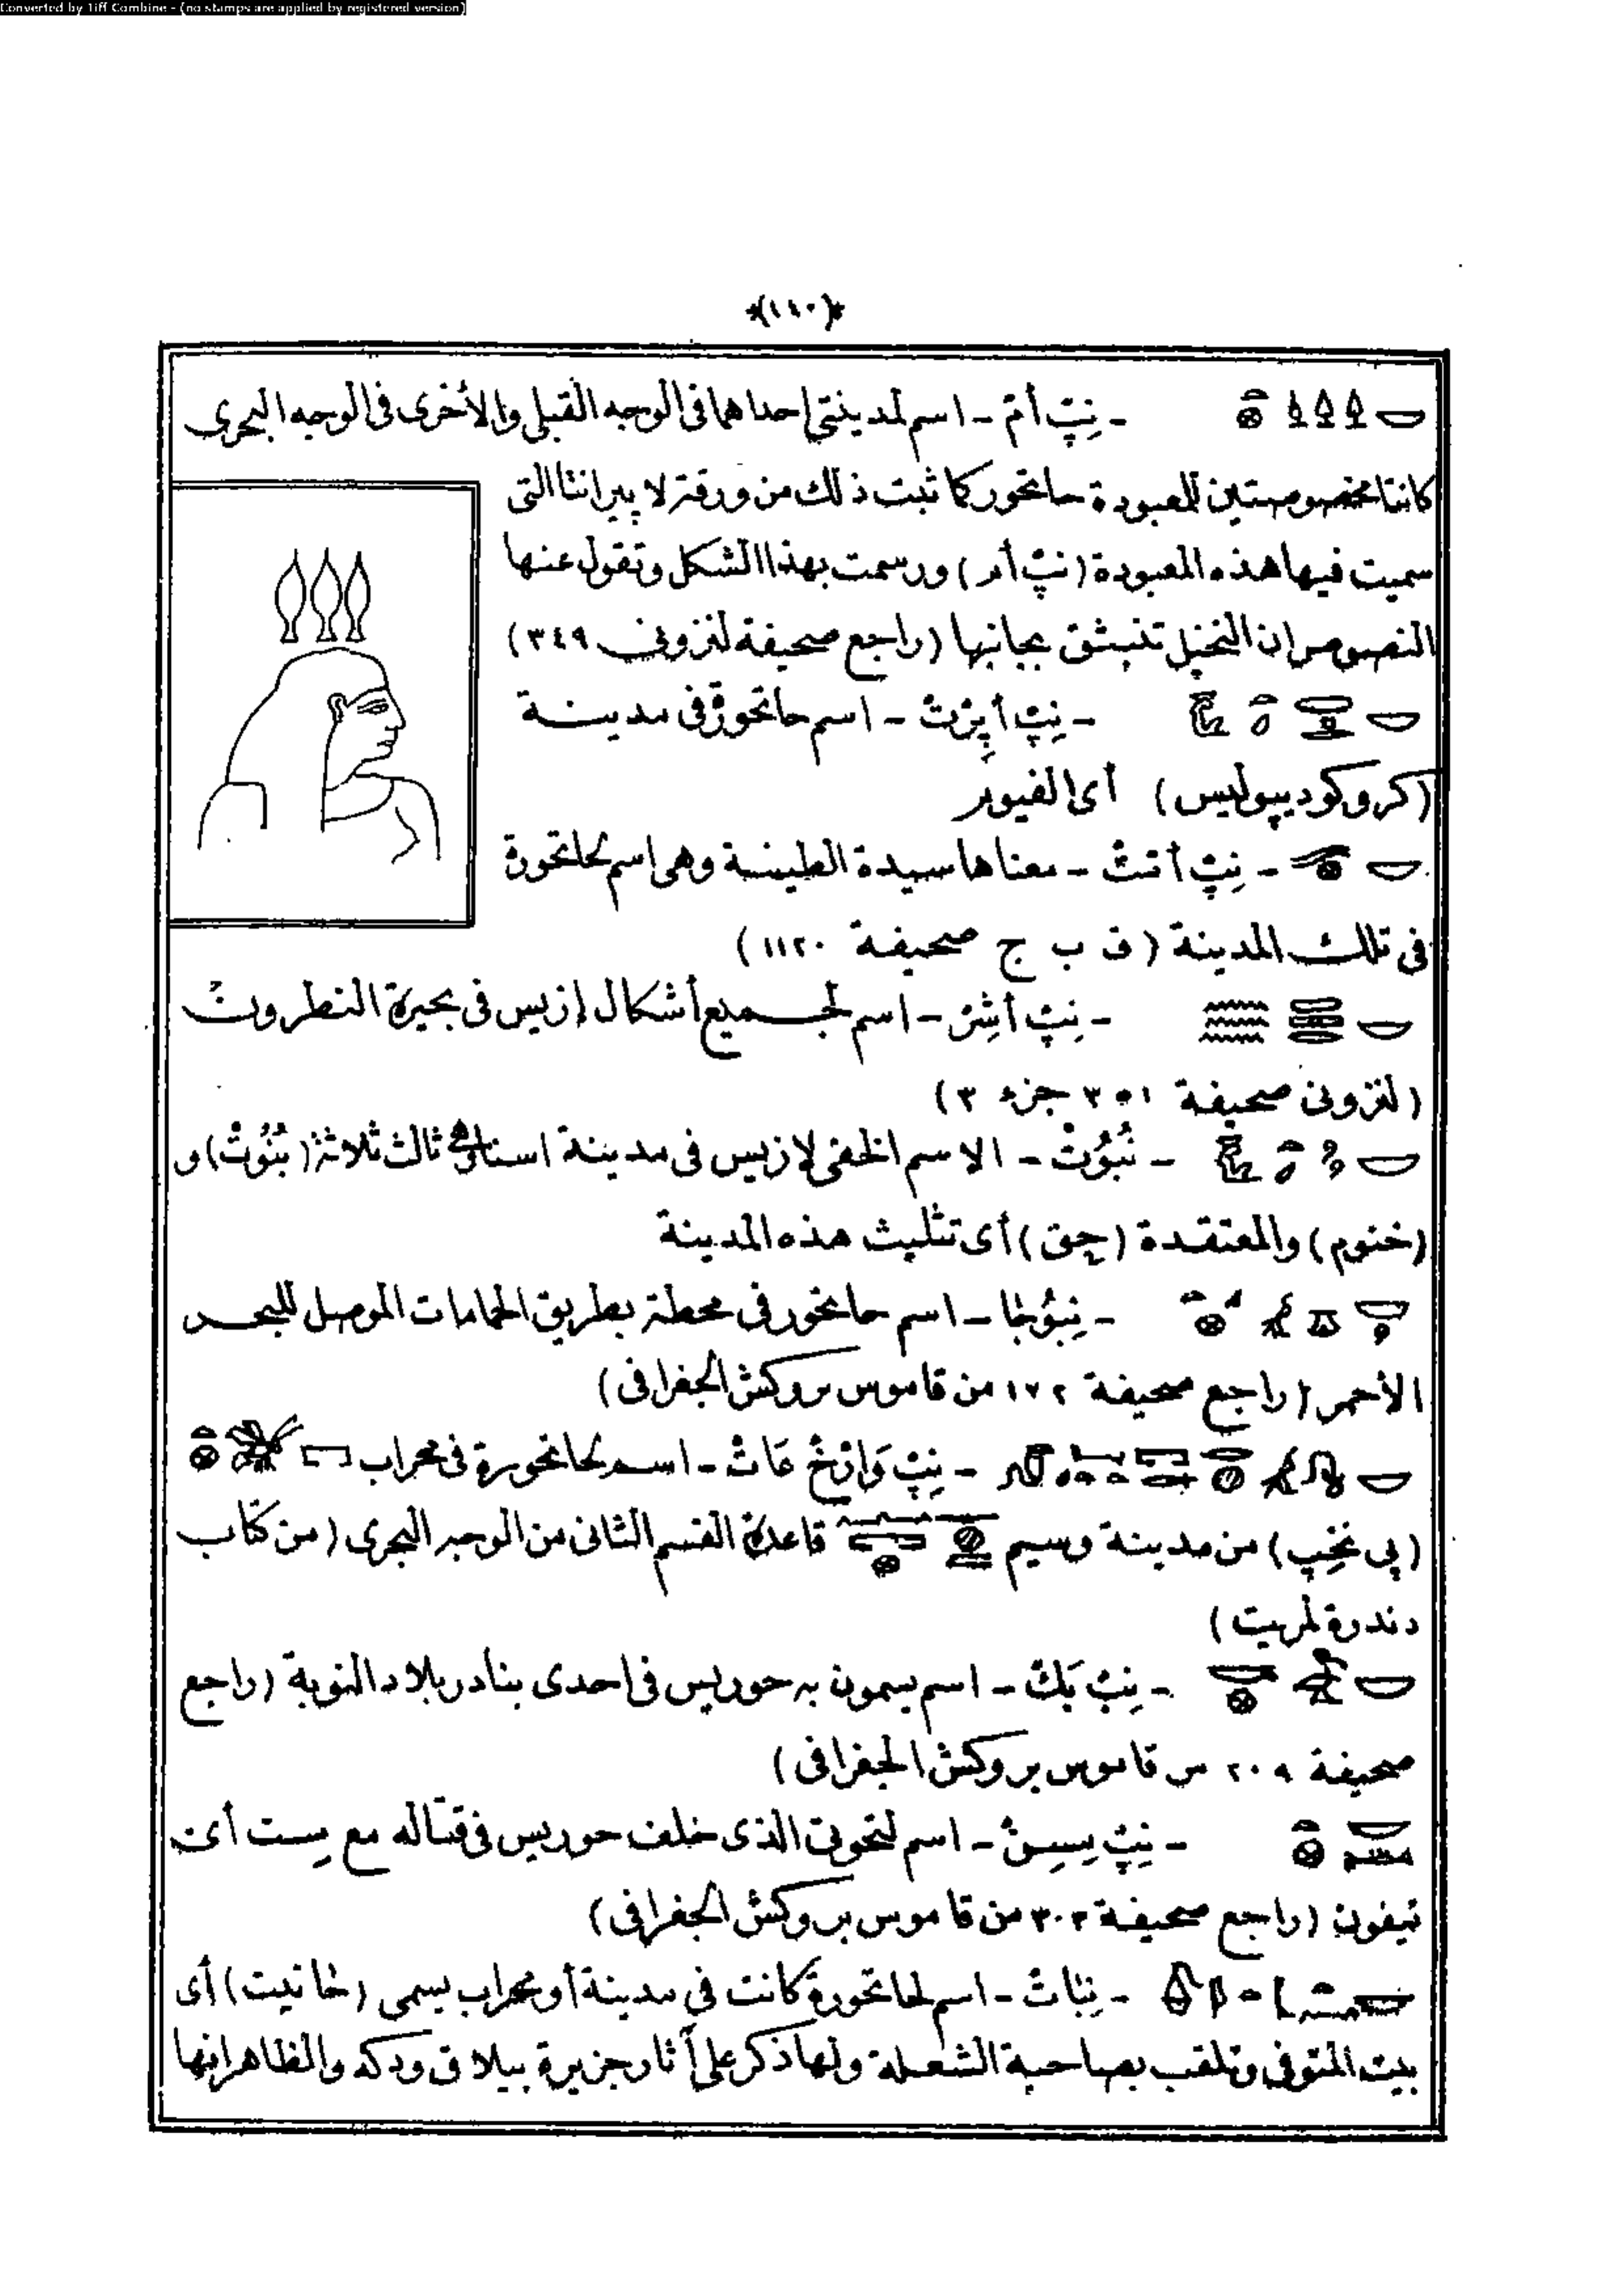 Converted by Tiff Combine - (no stamps are applied by registered version)
(١١٠)
- نِبْ أمْ - اسم لمدينتي إحداهما فى الوجه القبلى والأخرى فى الوجه البحرى
كانتا مخصوصتين للمعبودة حاتحور كما ثبت ذلك من ورقة لا پيرانتا التى
سميت فيها هذه المعبودة (نبْ أم) ورسمت بهذا الشكل وتقول عنها
النصوص ان النخيل تنبثق بجانبها (راجع صحيفة لنزونى ٣٤٩)
- نِبْ أپِرْتْ - اسم حاتحورْ فى مدينة
(كروكوديپوليس) أى الفيوم
- نِبْ أتتْ - معناها سيدة الطينة وهى اسم لحاتحورة
فى تلك المدينة (ف ب ج صحيفة ١١٢٠)
- نِبْ أشِرْ - اسم لجميع أشكال إزيس فى بحيرة النطرون
(لنزونى صحيفة ٣٥١ جزء ٣)
- نُبُوُتْ - الاسم الخفى لازيس فى مدينة اسنا وهى ثالث ثلاثة (نُبُوُتْ) و
(خنوم) والمعتقدة (حِق) أى تثليث هذه المدينة
- نِبُوُخا - اسم حاتحور فى محطة بطريق الحمامات الموصل للبحر
الأحمر (راجع صحيفة ١٧٢ من قاموس بروكش الجغرافى)
- نِبْ وَارْخْ عَاتْ - اسم لحاتحورة فى محراب
(پى نخِب) من مدينة وسيم قاعدة القسم الثانى من الوجه البحرى (من كتاب
دندرة لمريت)
- نِبْ بَكْ - اسم يسمون به حوريس فى احدى بنادر بلاد النوبة (راجع
صحيفة ٢٠٩ من قاموس بروكش الجغرافى)
- نِبْ سِسِنْ - اسم لتحوتى الذى خلف حوريس فى قتاله مع سِت أى
تيفون (راجع صحيفة ٣٠٣ من قاموس بروكش الجغرافى)
- نِبَاتْ - اسم لحاتحورة كانت فى مدينة أو محراب يسمى (خانيت) أى
بيت المتوفى وتلقب بصاحبة الشعلة ولها ذكر على آثار جزيرة بيلاق ودكه والظاهر انها